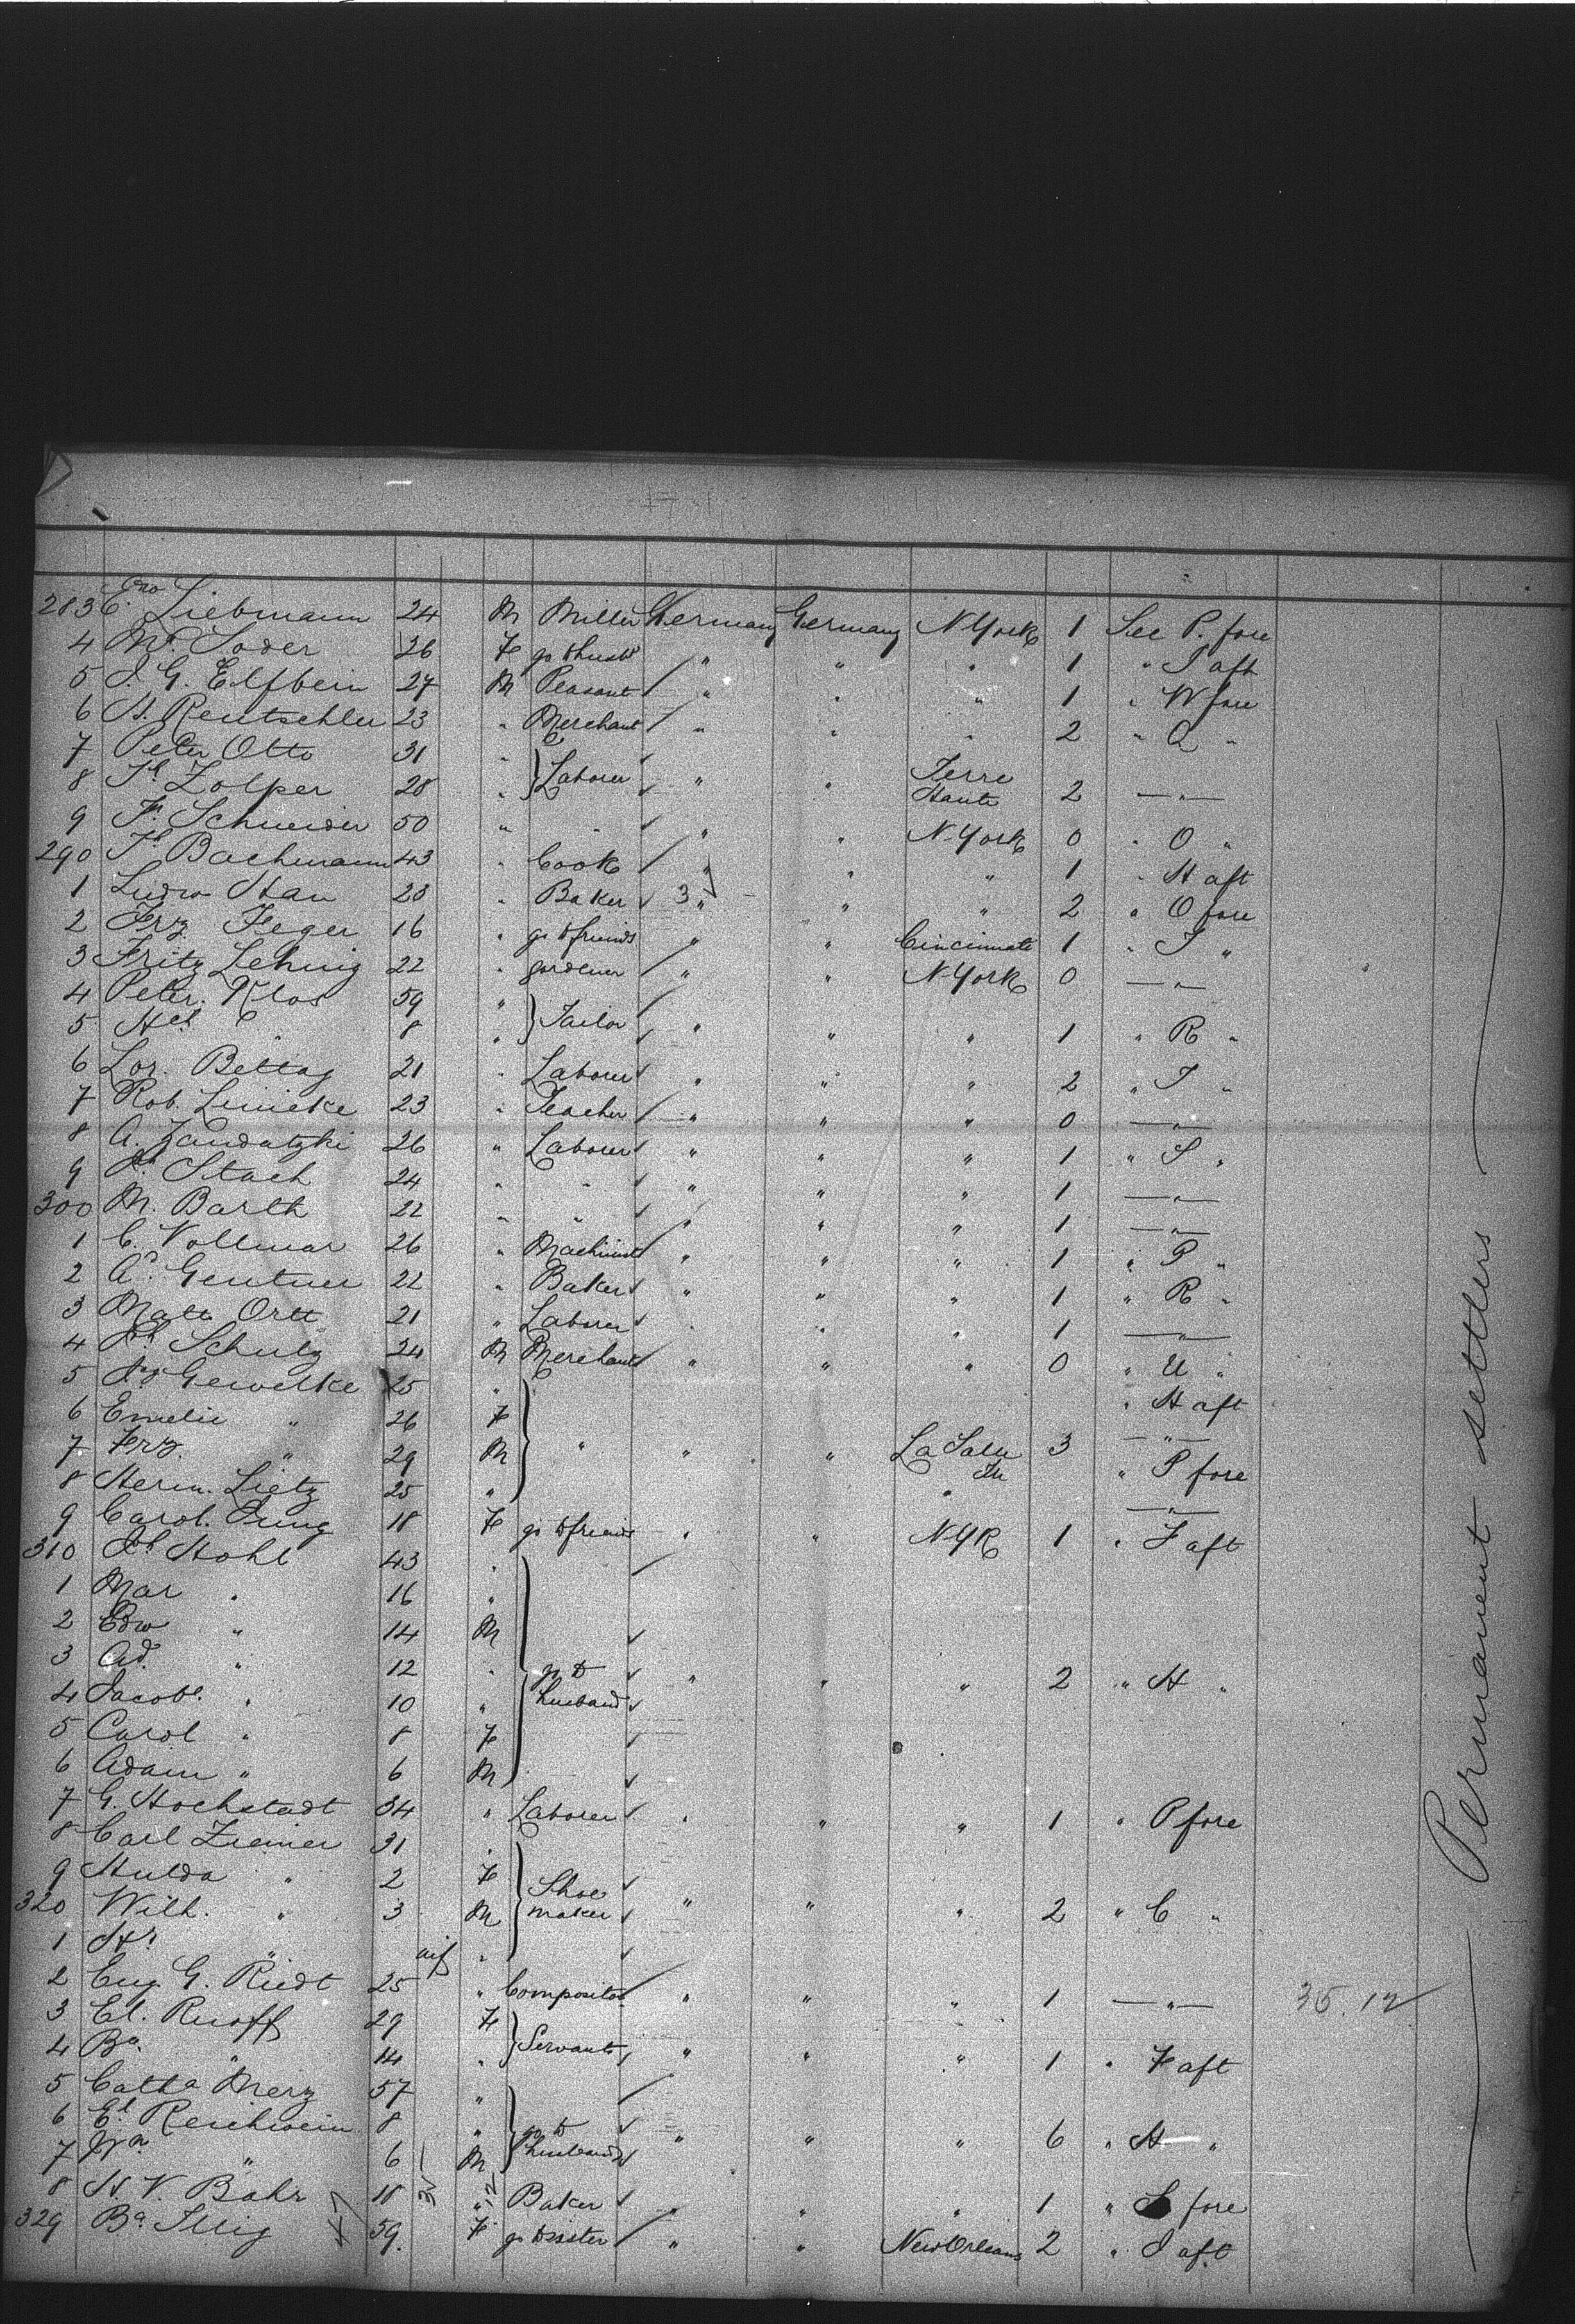 283 C. Liebmann 24 M Miller Germany Germany N York 1 See P. fore
4 Soder 26 F go t husbd " " " 1 " J aft
5 J. G. Elfbein 27 M Peasant " " " 1 " W fore
6 H. Rentschler 23 " Merchant " " " 2 " Q "
7 Peter Otto 31 "
8 Zolper 28 " Laborer " " Terre Haute 2 — " —
9 F. Schneider 50 " " " " N-York 0 " O "
290 Bachmann 43 " Cook " " " 1 " H aft
1 Ludw Hau 28 " Baker 3 " " " 2 " O fore
2 Frz Feger 16 " go t friends " " Cincinnati 1 " T "
3 Fritz Lehnig 22 " gardener " " N-York 0 — " —
4 Peter Klos 59 "
5 " 8 " Tailor " " " 1 " R "
6 Lor. Bettag 21 " Laborer " " " 2 " T "
7 Rob. Linicke 23 " Teacher " " " 0 — " —
8 A. Zandatzki 26 " Laborer " " " 1 " S "
9 Stach 24 " " " " " 1 — " —
300 M. Barth 22 " " " " " 1 — " —
1 C. Vollmar 26 " Machinist " " " 1 " P "
2 Gentner 22 " Baker " " " 1 " R "
3 Matt Ortt 21 " Laborer " " " 1 — " —
4 Schulz 24 M Merchant " " " 0 " U "
5 Gewelke 25 " " H aft
6 Emelie " 26 F — " —
7 Frz. " 29 M " " " La Salle Ill 3 " P fore
8 Herm. Lietz 25 " " — " —
9 Carol. Jung 18 F go t friends " " N-YR 1 " F aft
310 Hohl 43 "
1 Mar " 16 "
2 Edw " 14 M
3 Ad. " 12 " go t husband " " " 2 " H "
4 Jacob. " 10 "
5 Carol " 8 F
6 Adam " 6 M
7 G. Hochstadt 34 " Laborer " " " 1 " P fore
8 Carl Ziemer 31 "
9 Hulda " 2 F Shoe
320 Wilh. " 3 M maker " " " 2 " C "
1 " inf "
2 Eug. G. Riedt 25 " Compositor " " " 1 — " — 35.12
3 El. Ruoff 29 F
4 Ba. " 14 " Servants " " " 1 " F aft
5 Catha Merz 57 "
6 El. Reichwein 8 " go t husband " " " 6 " H "
7 " 6 M
8 H. V. Bahr 18 " Baker " " " 1 " S fore
329 Ba. Illig 59. F go t sister " " New Orleans 2 " J aft
Permanent settlers